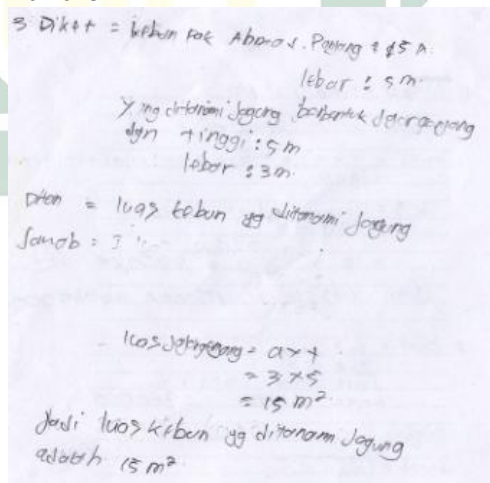 3 Diket = kebun Pak Abbas. Panjang : 15 m.
lebar : 5 m
yang ditanami jagung berbentuk jajargenjang
dgn tinggi : 5 m
lebar : 3 m.
Ditan = luas kebun yg ditanami jagung
Jawab :
luas jajargenjang = a x t
= 3 x 5
= 15 m².
Jadi luas kebun yg ditanami Jagung
adalah 15 m².